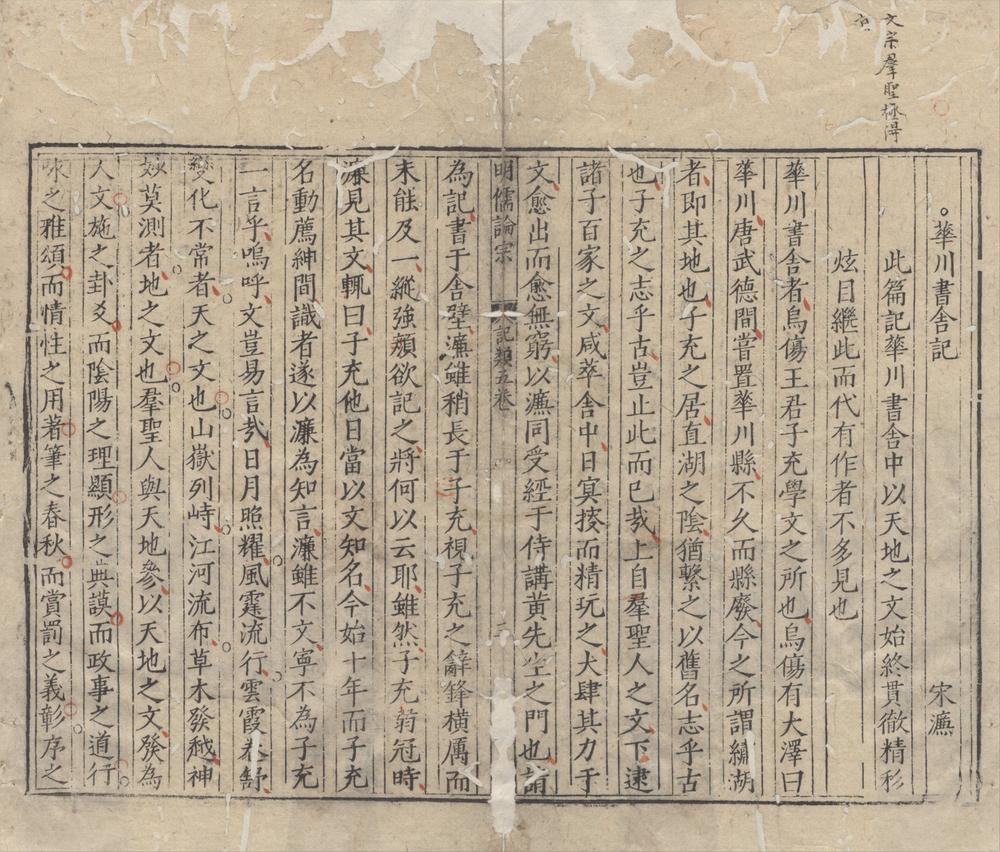 文宗羣聖極得
華川書舍記
宋濂
此篇記華川書舍中以天地之文始終貫徹精彩
炫目繼此而代有作者不多見也
華川書舍者烏傷王君子充學文之所也烏傷有大澤曰
華川唐武德間嘗置華川縣不久而縣廢今之所謂繡湖
者即其地也子充之居直湖之陰猶繫之以舊名志乎古
也子充之志乎古豈止此而已哉上自羣聖人之文下逮
諸子百家之文咸萃舍中日冥搜而精玩之大肆其力于
文愈出而愈無窮以濂同受經于侍講黃先生之門也請
明儒論宗
記類五卷
二
為記書于舍壁濂雖稍長于子充視子充之辭鋒橫厲而
未能及一縱強顏欲記之將何以云耶雖然子充弱冠時
濂見其文輒曰子充他日當以文知名今始十年而子充
名動薦紳間識者遂以濂為知言濂雖不文寧不為子充
一言乎嗚呼文豈易言哉日月照耀風霆流行雲霞卷舒
變化不常者天之文也山嶽列峙江河流布草木發越神
妙莫測者地之文也羣聖人與天地參以天地之文發為
人文施之卦爻而陰陽之理顯形之典謨而政事之道行
咏之雅頌而情性之用著筆之春秋而賞罰之義彰序之